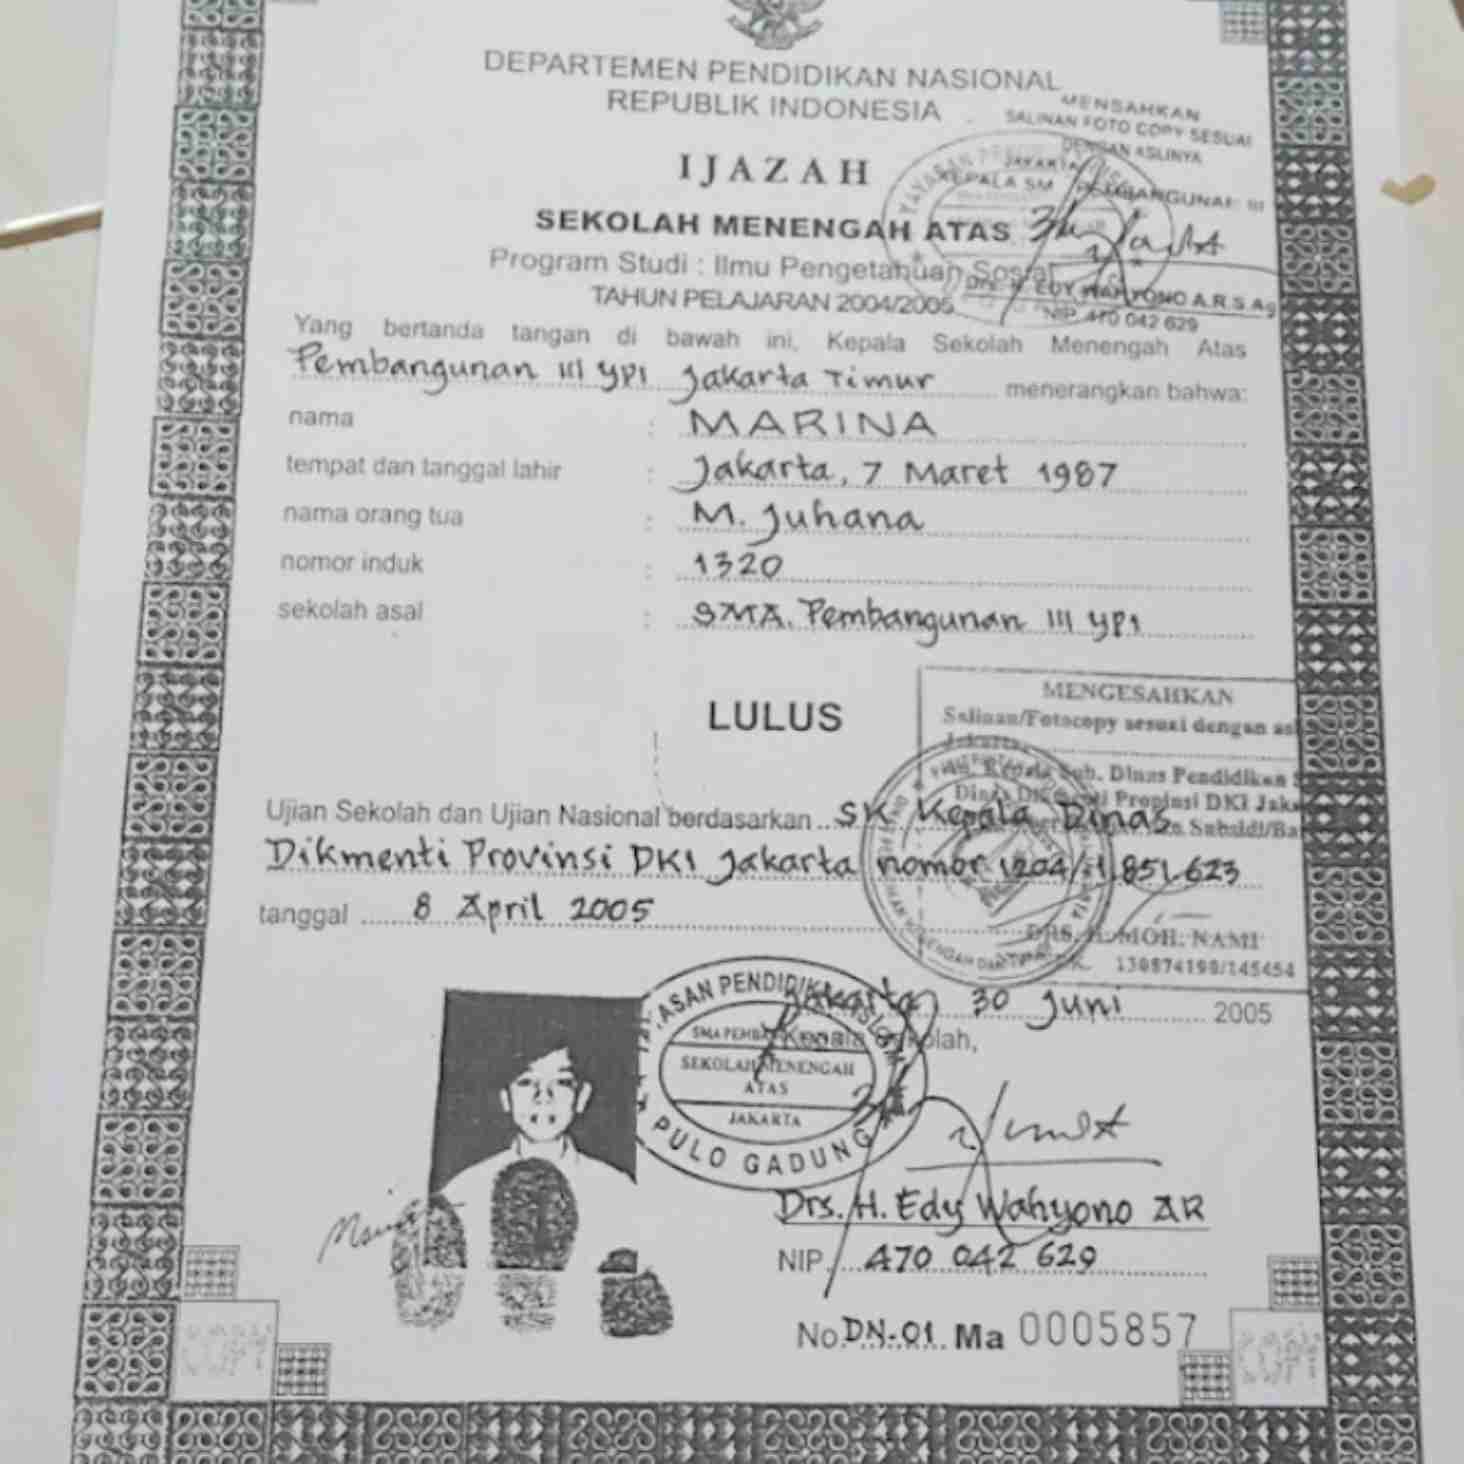 DEPARTEMEN PENDIDIKAN NASIONAL
REPUBLIK INDONESIA
MENSAHKAN
SALINAN FOTO COPY SESUAI
DENGAN ASLINYA
JAKARTA
KEPALA SM PEMBANGUNAN III
IJAZAH
SEKOLAH MENENGAH ATAS
Program Studi : Ilmu Pengetahuan Sosial
TAHUN PELAJARAN 2004/2005
Drs. H. EDY WAHYONO A.R.S.Ag
NIP. 470 042 629
Yang bertanda tangan di bawah ini, Kepala Sekolah Menengah Atas
Pembangunan III YPI Jakarta Timur menerangkan bahwa:
nama : MARINA
tempat dan tanggal lahir : Jakarta, 7 Maret 1987
nama orang tua : M. Juhana
nomor induk : 1320
sekolah asal : SMA. Pembangunan III YPI
LULUS
MENGESAHKAN
Salinan/Fotocopy sesuai dengan asl
Jakarta,
Kepala Sub. Dinas Pendidikan S
Dinas Dikmenti Propinsi DKI Jaka
Subsidi/Ba
Ujian Sekolah dan Ujian Nasional berdasarkan SK Kepala Dinas
Dikmenti Provinsi DKI Jakarta nomor 1204/-1.851.623
tanggal 8 April 2005
DRS. H. MOH. NAMI
130874198/145454
Jakarta, 30 Juni 2005
Kepala Sekolah,
SMA PEMBA
SEKOLAH MENENGAH
ATAS
JAKARTA
PULO GADUNG
Drs. H. Edy Wahyono AR
NIP. 470 042 629
No. DN-01 Ma 0005857